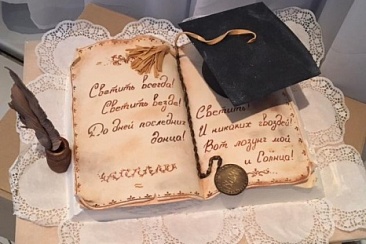 Светить всегда!
Светить везде!
До дней последних
донца!
Светить!
И никаких гвоздей!
Вот лозунг мой
и Солнца!